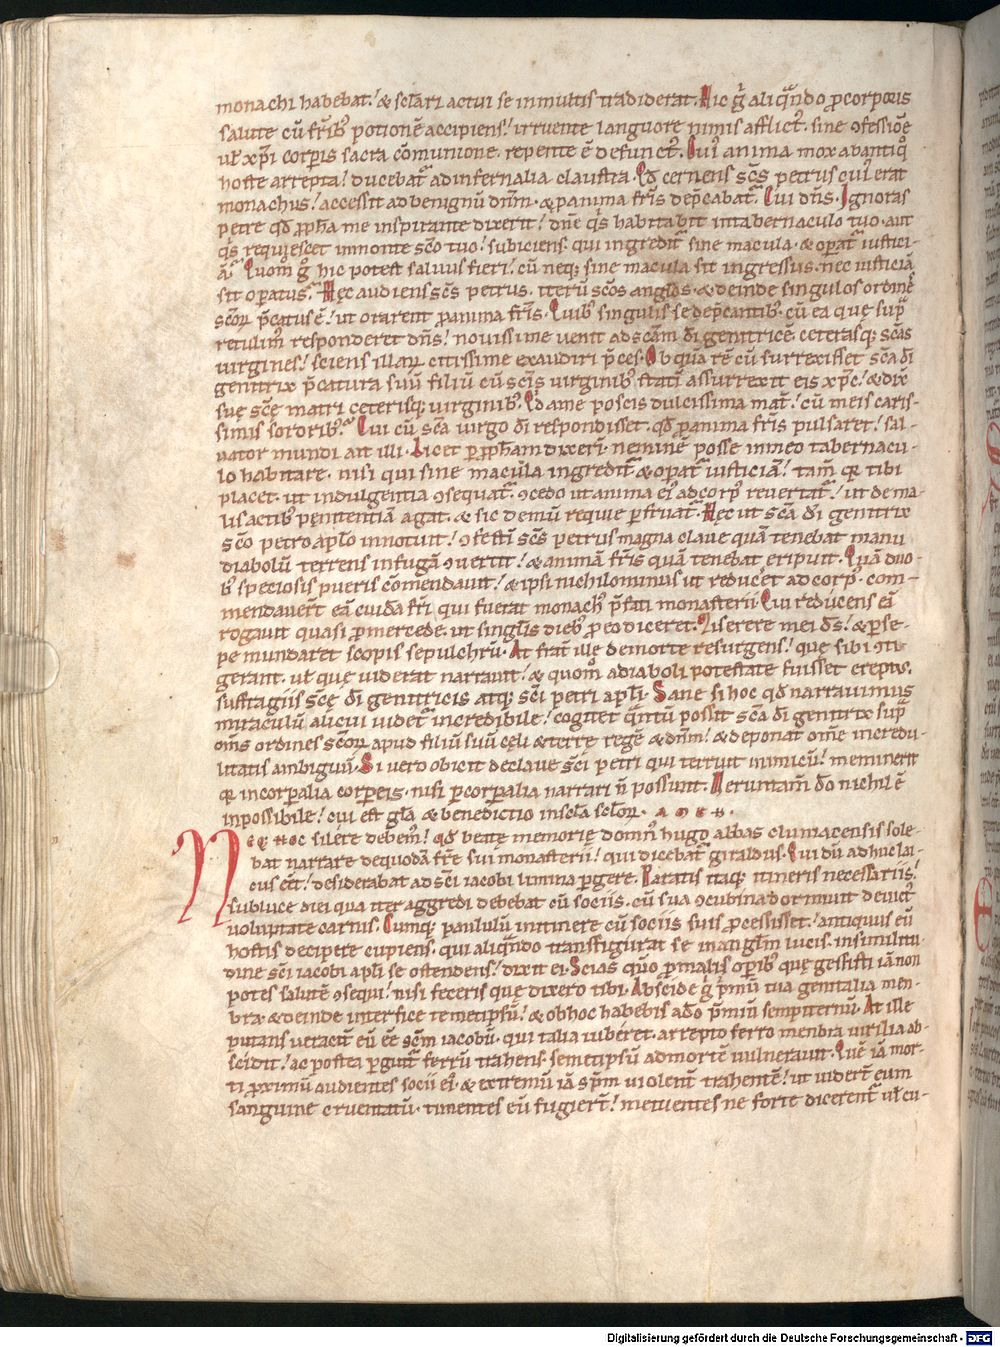 monachi habebat! & scl̃ari actui se in multis tradiderat. Hic g̃ aliqñdo ꝓ corporis
salute cũ fr̃ib; potionẽ accipiens! irruente languore nimis afflict᷒. sine ꝯfessiõe
ut̃ xp̃i corporis sacra cõmunione. repente ẽ defunct᷒. Cui᷒ anima mox ab antiq᷒
hoste arrepta! ducebat᷑ ad infernalia claustra. Qd̃ cernens sc̃s petrus cui᷒ erat
monachus! accessit ad benignũ dñm. & ꝓ anima fr̃is dep̃cabat᷑. Cui dñs. Ignoras
petre qd̃ ꝓph̃a me inspirante dixerit! dñe q̃s habitabit in tabernaculo tuo. aut
q̃s requiescet in monte sc̃o tuo! subiciens. qui ingredit᷑ sine macula. & operat᷑ iustici-
ã. Quom̃ g̃ hic potest saluus fieri! cũ neq; sine macula sit ingressus. nec iusticiã
sit operatus. Hęc audiens sc̃s petrus. iterũ sc̃os angl̃os. & deinde singulos ordinẽ
sc̃oꝝ p̃catus ẽ! ut orarent ꝓ anima fr̃is. Quib; singulis se dep̃cantib; cũ ea que sup᷑
retulim᷒ responderet dñs! nouissime uenit ad sc̃am dĩ genitricẽ. ceterasq; sc̃as
uirgines! sciens illaꝝ citissime exaudiri p̃ces. Ob qua rẽ cũ surrexisset sc̃a dĩ
genitrix p̃catura suũ filiũ cũ sc̃is uirginib; statĩ assurrexit eis xp̃c! & dix̃
suę sc̃ę matri ceterisq; uirginib;. Qd̃ a me poscis dulcissima mat̃! cũ meis caris-
simis sororib;. Cui cũ sc̃a uirgo dĩ respondisset. qd̃ ꝓ anima fr̃is pulsaret! sal-
uator mundi ait illi. Licet ꝑ ꝓph̃am dixeri᷑. neminẽ posse in meo tabernacu-
lo habitare. nisi qui sine macula ingredit᷑ & operat᷑ iusticiã! tam̃ qꝛ tibi
placet. ut indulgentia ꝯsequat᷑. ꝯcedo ut anima ei᷒ ad corp᷒ reuertat᷑! ut de ma-
lis actib; penitentiã agat. & sic demũ requie ꝑfruat᷑. Hęc ut sc̃a dĩ genitrix
sc̃o petro apl̃o innotuit! ꝯfestĩ sc̃s petrus magna claue quã tenebat manu
diabolũ terrens in fugã ꝯuertit! & animã fr̃is quã tenebat eripuit. Quã duo-
b; speciosis pueris cõmendauit! & ipsi nichilominus ut reducer̃et ad corp᷒. com-
mendauer̃t eã cuidã fr̃i qui fuerat monach᷒ p̃fati monasterii. Qui reducens eã
rogauit quasi ꝓ mercede. ut singl̃is dieb; ꝓ eo diceret. Miserere mei d̃s! & ꝑ se-
pe mundaret scopis sepulchrũ. At frat̃ ille de morte resurgens! que sibi ꝯti-
gerant. ut̃ que uiderat narrauit! & quom̃ a diaboli potestate fuisset ereptus.
suffragiis sc̃ę dĩ genitricis atq; sc̃i petri apl̃i. Sane si hoc qd̃ narrauimus
miraculũ alicui uidet᷑ incredibile! cogitet q̃ntũ possit sc̃a dĩ genitrix sup᷑
om̃s ordines sc̃oꝝ apud filiũ suũ cęli & terrę regẽ & dñm! & deponat om̃e incredu-
litatis ambiguũ. Si uero obicit de claue sc̃i petri qui terruit inimicũ! meminerit
qꝛ incorporalia corporeis. nisi ꝑ corporalia narrari ñ possunt. Uerumtam̃ dõ nichil ẽ
inpossibile! cui est gl̃a & benedictio in scl̃a scl̃oꝝ. AMEN.
Neqe hoc silere debem᷒! qd̃ beatę memorię domn᷒ hugo abbas cluniacensis sole-
bat narrare de quodã fr̃e sui monasterii! qui dicebat᷑ giraldus. Qui dũ adhuc lai-
cus eẽt! desiderabat ad sc̃i iacobi limina ꝑgere. Paratis itaq; itineris necessariis!
sub luce diei qua iter aggredi debebat cũ sociis. cũ sua ꝯcubina dormiuit deuict᷒
uoluptate carnis. Cumq; paululũ in itinere cũ sociis suis ꝓcessisset! antiquus eũ
hostis decipere cupiens. qui aliqñdo transfigurat se in angl̃m lucis. in similitu-
dine sc̃i iacobi apl̃i se ostendens! dixit ei. Scias quõ ꝓ malis operib; quę gessisti iã non
potes salutẽ ꝯsequi! nisi feceris quę dixero tibi. Abscide g̃ p̃mũ tua genitalia men-
bra. & deinde interfice temetipsũ! & ob hoc habebis a dõ p̃miũ sempiternũ. At ille
putans ueracit̃ eũ eẽ sc̃m iacobũ. qui talia iuberet. arrepto ferro menbra uirilia ab-
scidit! ac postea ꝑ guttur̃ ferrũ trahens. semetipsũ ad mortẽ uulnerauit. Quẽ iã mor-
ti ꝓximũ audientes socii ei᷒. & extremũ iã sp̃m uiolent᷒ trahentẽ! ut uider̃t eum
sanguine cruentatũ. timentes eũ fugier̃t! metuentes ne forte dicerent᷑ ut̃ cu-
Digitalisierung gefördert durch die Deutsche Forschungsgemeinschaft - DFG